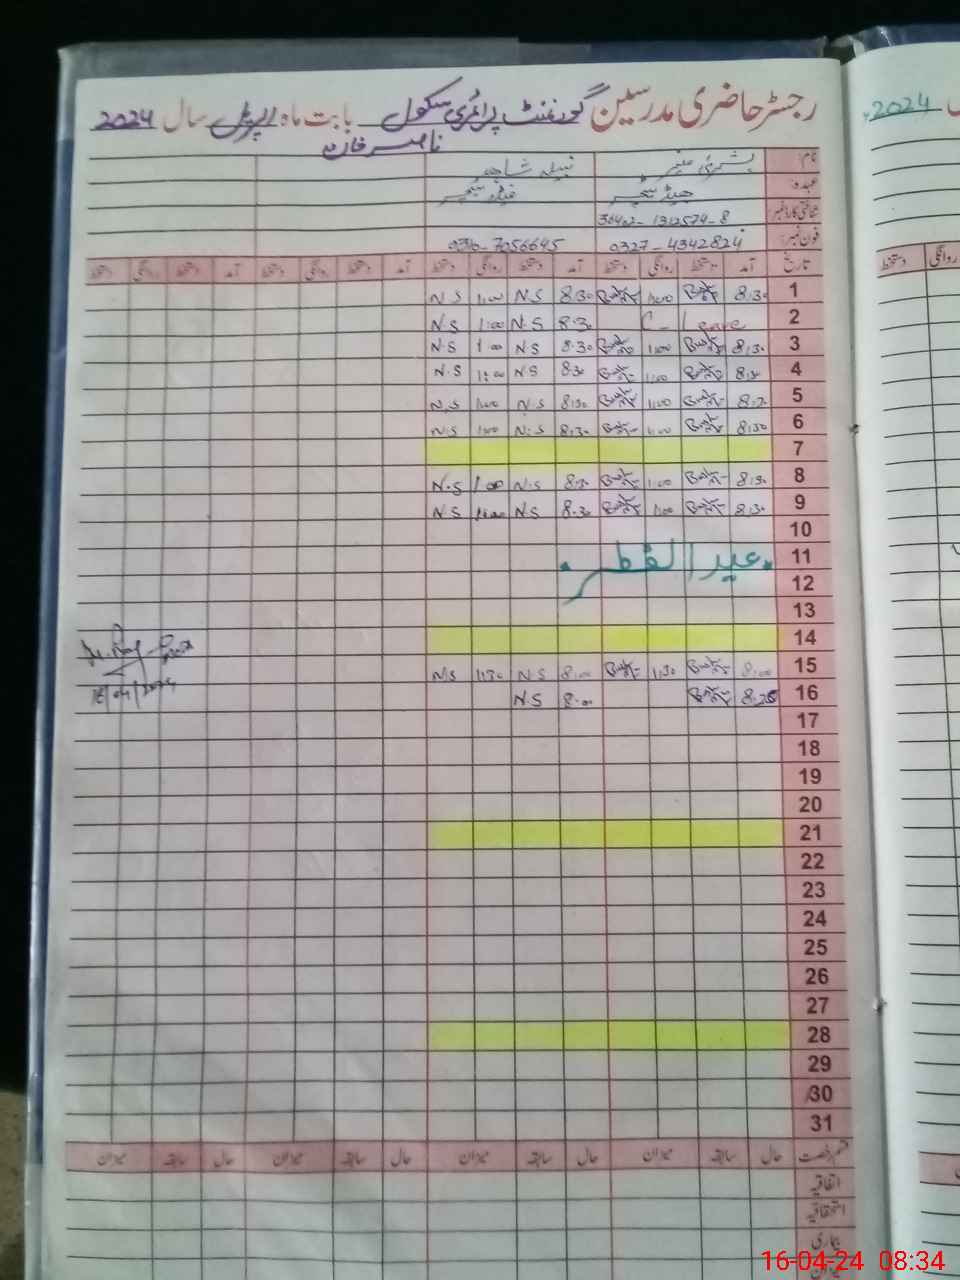 رجسٹر حاضری مدرسین گورنمنٹ پرائمری سکول بابت ماہ اپریل سال 2024
ناصر خان
نام: بشریٰ منیر نبیلہ شاہد
عہدہ: ہیڈ ٹیچر
شناختی کارڈ نمبر
فون نمبر: 0327-4342824
تاریخ آمد دستخط روانگی دستخط آمد دستخط روانگی دستخط آمد دستخط روانگی دستخط آمد دستخط روانگی دستخط
1 8:30 1:00 8:30 N.S 1:00 N.S
2 C-Leave 8:30 N.S 1:00 N.S
3 8:30 1:00 8:30 N.S 1:00 N.S
4 8:30 1:00 8:30 N.S 1:00 N.S
5 8:30 1:00 8:30 N.S 1:00 N.S
6 8:30 1:00 8:30 N.S 1:00 N.S
7
8 8:30 1:00 8:30 N.S 1:00 N.S
9 8:30 1:00 8:30 N.S 1:00 N.S
10
11 عید الفطر
12
13
14
15 8:00 1:30 8:00 N.S 1:30 N.S
16 8:00 N.S
17
18
19
20
21
22
23
24
25
26
27
28
29
30
31
قسم رخصت حال سابقہ میزان حال سابقہ میزان حال سابقہ میزان حال سابقہ میزان
اتفاقیہ
استحقاقیہ
بیماری
میزان
2024
روانگی دستخط
16-04-24 08:34